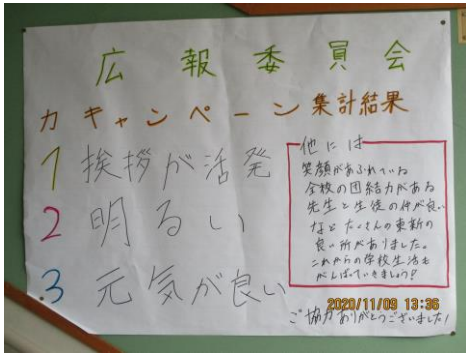 広報委員会
力キャンペーン集計結果
1 挨拶が活発
2 明るい
3 元気が良い
他には
笑顔があふれている
全校の団結力がある
先生と生徒の仲が良い
などたくさんの東新の
良い所がありました。
これからの学校生活も
がんばっていきましょう!
2020/11/09 13:36
ご協力ありがとうございました!